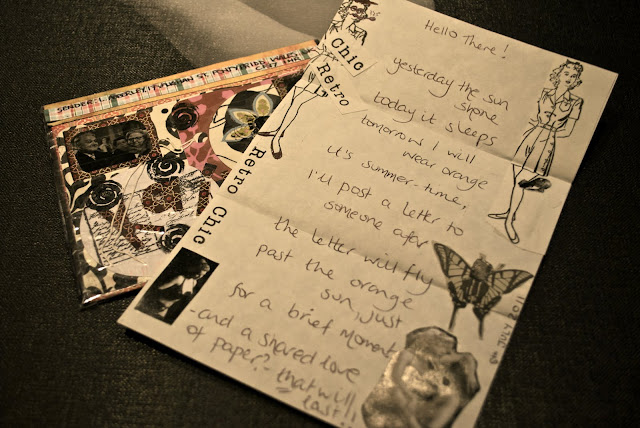 Hello There!
yesterday the sun
shone
today it sleeps
tomorrow I will
wear orange
it's summer-time,
I'll post a letter to
someone afar
the letter will fly
past the orange
sun, just
for a brief moment
- and a shared love
of paper? - that will
last!
Chic
Retro
Retro Chic
11.02 JULY
SENDER: